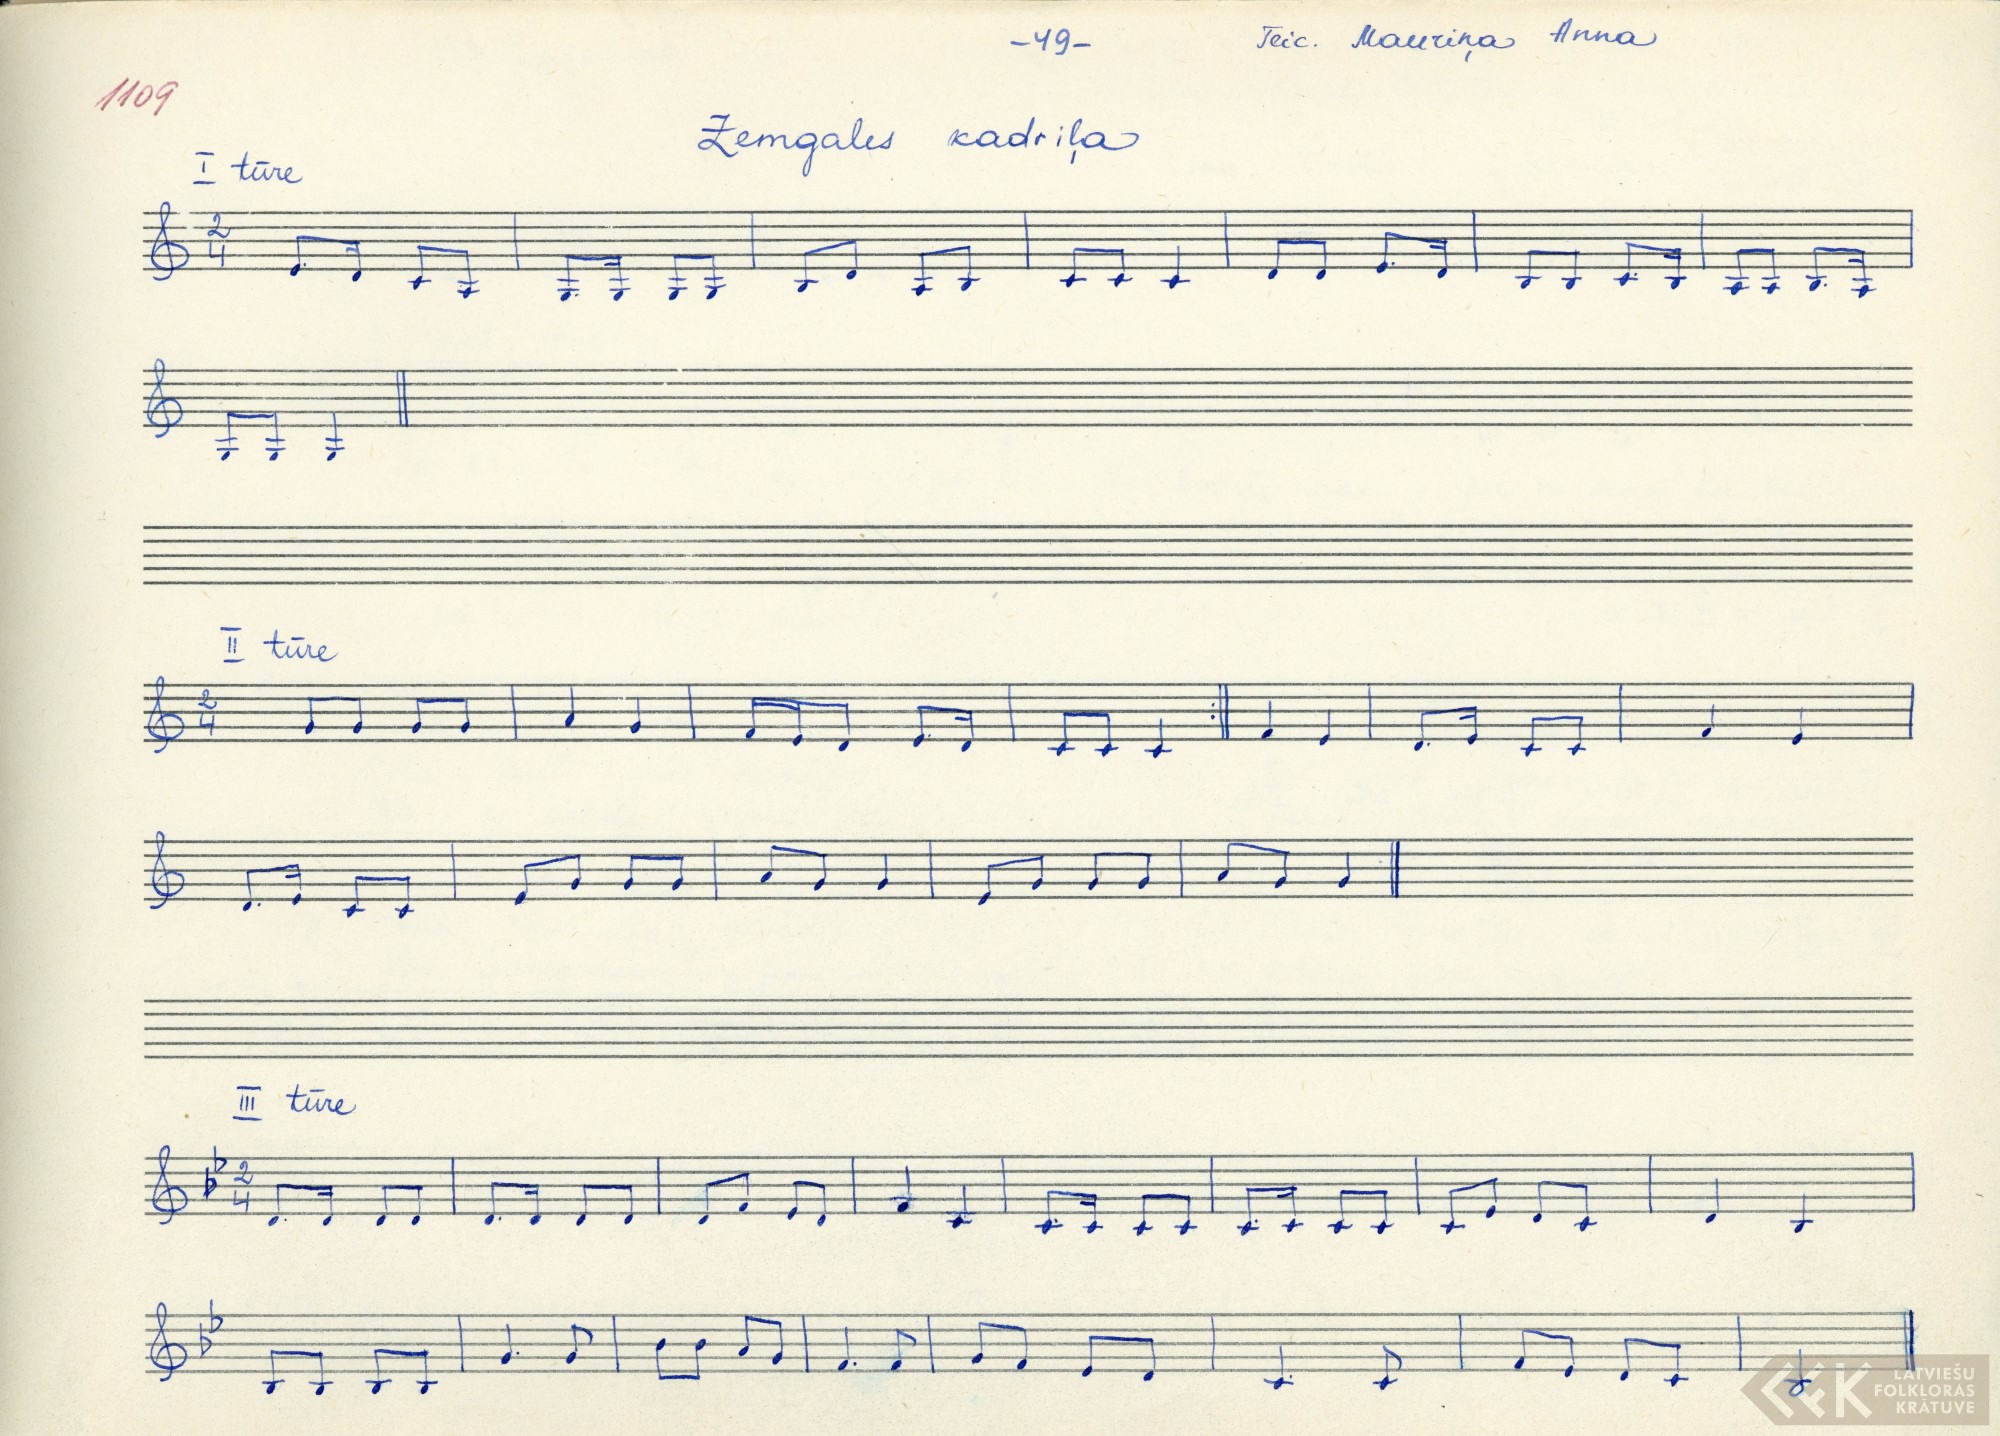 -49- Teic. Mauriņa Anna
1109
Zemgales kadriļa
I tūre
2
4
II tūre
2
4
III tūre
2
4
LATVIEŠU
FOLKLORAS
KRĀTUVE